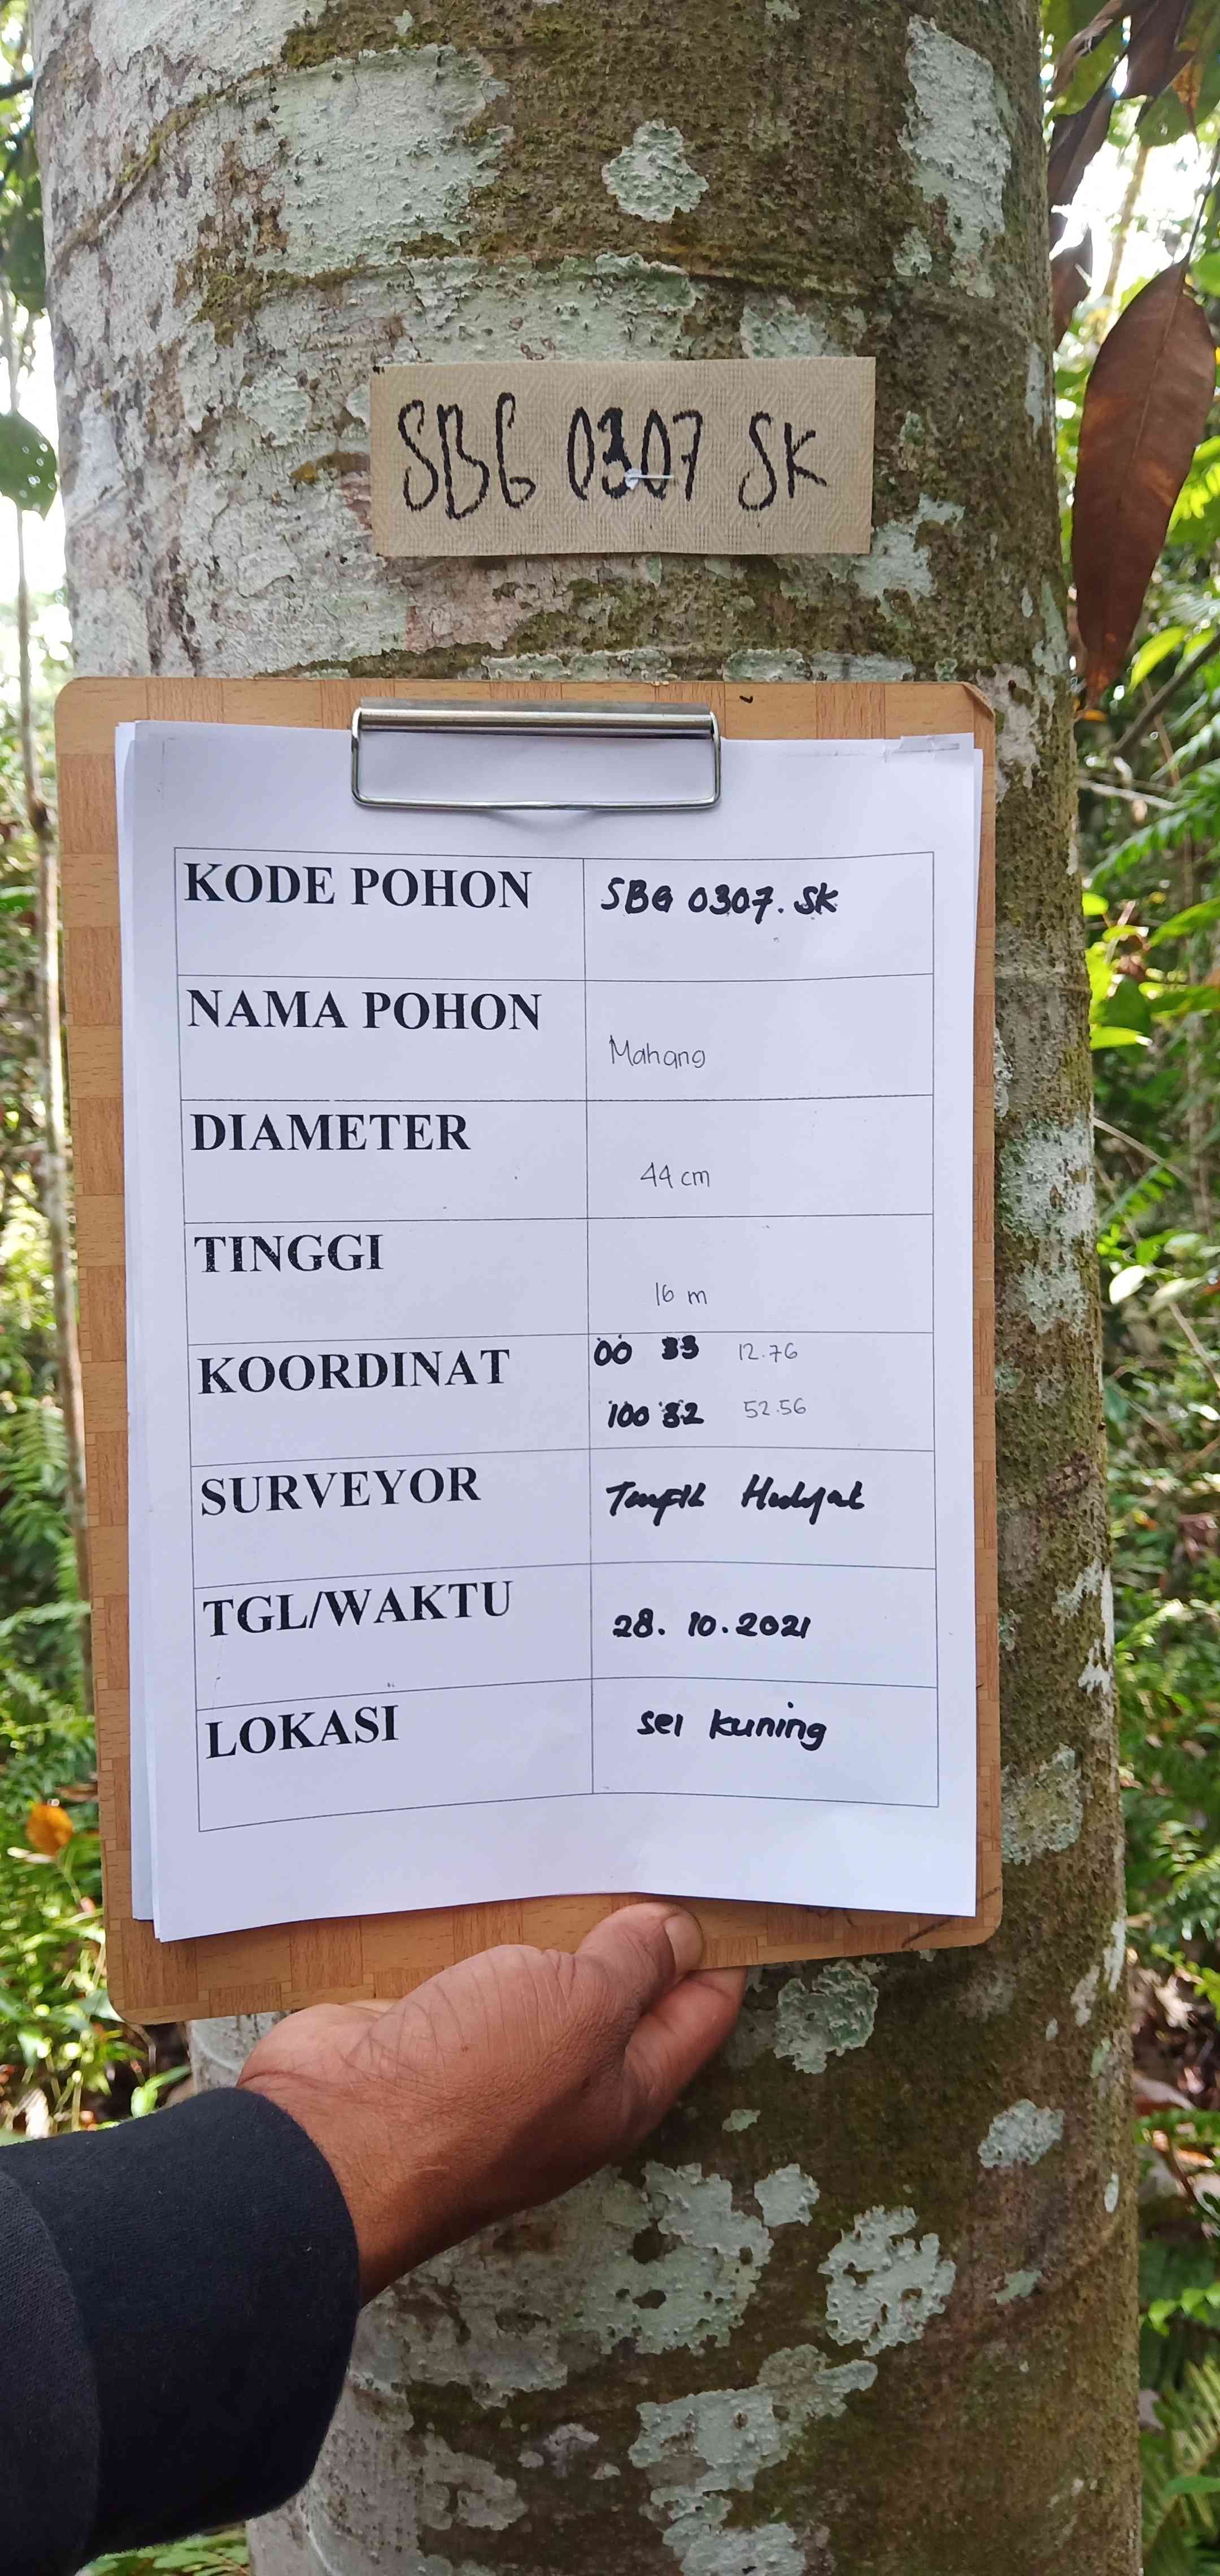 SBG 0307 SK
KODE POHON SBG 0307. SK
NAMA POHON Mahang
DIAMETER 44 cm
TINGGI 16 m
KOORDINAT 00 33 12.76
100 32 52.56
SURVEYOR Taufik Hidayat
TGL/WAKTU 28. 10. 2021
LOKASI sei kuning